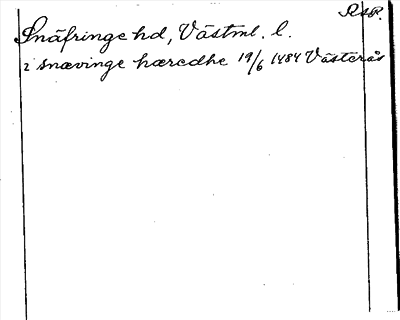 RAP.
Snäfringe hd, Västml. l.
i snævinge hæredhe 19/6 1484 Västerås